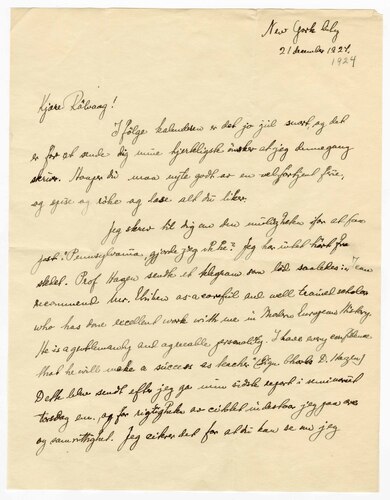 New York City
21 december 1924.
1924
Kjære Rölvaag!
Ifölge kalenderen er det jo jul snart, og det
er for at sende dig mine hjerteligste önsker at jeg denne gang
skriver. Haaper du maa nyte godt av en velfortjent frie,
og spise og röke og læse alt du liker.
Jeg skrev til dig om den muligheten for at faa
post i Pennsylvania, gjorde jeg ikke? Jeg har intet hört fra
stedet. Prof. Hagen sendte et telegram som löd saaledes: "I can
recommend Mr. as a careful and well trained scholar
who has done excellent work with me in Modern European History.
He is a gentlemanly and agreeable personality. I have every confidence
that he will make a success as teacher" (Sign. Charles D. Hagen)
Dette blev sendt efter jeg ga min sidste report i seminaret
torsdag em. og for rigtigheten av citatet indestaar jeg paa ære
og samvittighet. Jeg citerer det for at du kan se om jeg